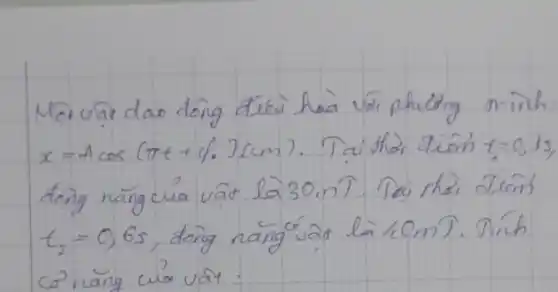 Một vật dao động điều hoà với phương trình
x = A cos (πt + φ)(cm). Tại thời điểm t₁ = 0,1s,
động năng của vật là 30 mJ. Tại thời điểm
t₂ = 0,6s, động năng vật là 40mJ. Tính
cơ năng của vật.